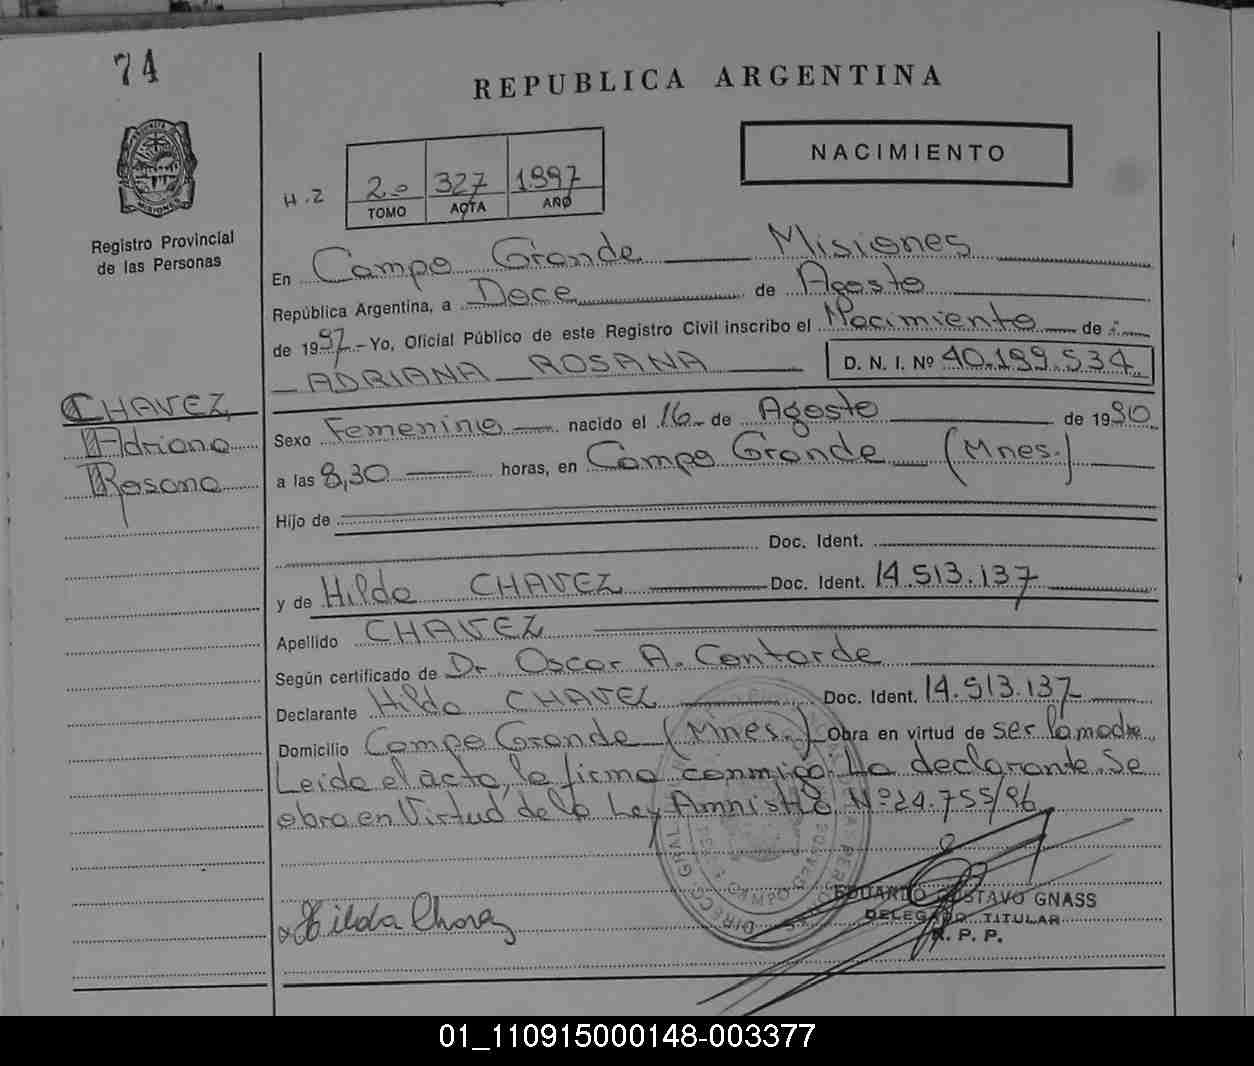 74
REPUBLICA ARGENTINA
NACIMIENTO
H.Z
2º 327 1997
TOMO ACTA AÑO
Registro Provincial
de las Personas
En Campo Grande Misiones
República Argentina, a Doce de Agosto
de 1997.-Yo, Oficial Público de este Registro Civil inscribo el Nacimiento de :
ADRIANA ROSANA D. N. I. Nº 40.199.534
CHAVEZ
Adriana
Rosana
Sexo Femenino nacido el 16 de Agosto de 1990
a las 8,30 horas, en Campo Grande (Mnes.)
Hijo de
Doc. Ident.
y de Hilda CHAVEZ Doc. Ident. 14.513.137
Apellido CHAVEZ
Según certificado de Dr Oscar A. Contarde
Declarante Hilda CHAVEZ Doc. Ident. 14.513.137
Domicilio Campo Grande (Mnes.) Obra en virtud de ser la madre
Leída el acta, la firma conmigo La declarante. Se
obra en Virtud de la Ley Amnistía Nº 24.755/96
Hilda Chavez
EDUARDO GUSTAVO GNASS
DELEGADO TITULAR
R. P. P.
01_110915000148-003377